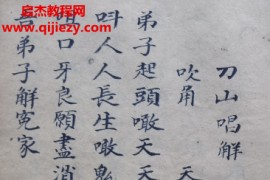 启杰教程网
www.qijiezy.com
刀山唱解
吹角 天
弟子起頭噉天天
呌人人長生噉鬼
開口牙良願盡消
吾弟子解冤家